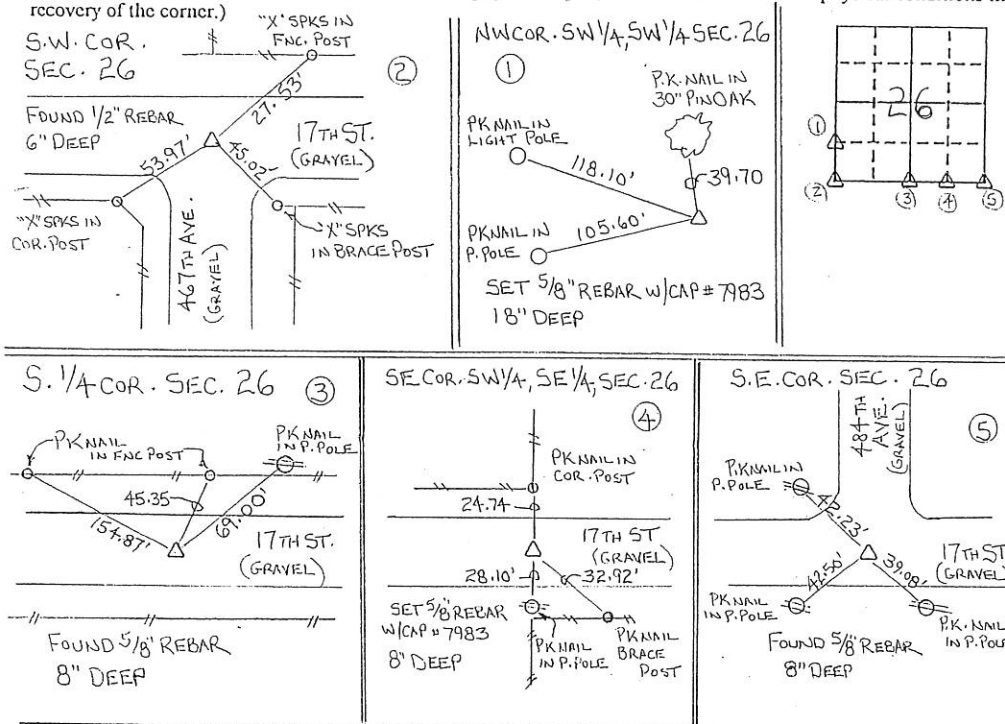 recovery of the corner.)
S.W. COR.
SEC. 26
"X" SPKS IN
FNC. POST
②
FOUND 1/2" REBAR
6" DEEP
27.53'
53.97'
45.02'
17TH ST.
(GRAVEL)
"X" SPKS IN
COR. POST
467TH AVE.
(GRAVEL)
"X" SPKS
IN BRACE POST
NW COR. SW 1/4, SW 1/4 SEC. 26
①
P.K. NAIL IN
30" PIN OAK
PK NAIL IN
LIGHT POLE
118.10'
39.70
105.60'
PK NAIL IN
P. POLE
SET 5/8" REBAR W/CAP # 7983
18" DEEP
26
①
②
③
④
⑤
S. 1/4 COR. SEC. 26
③
PK NAIL
IN FNC POST
PK NAIL
IN P. POLE
45.35
154.87'
69.00'
17TH ST.
(GRAVEL)
FOUND 5/8" REBAR
8" DEEP
SE COR. SW 1/4, SE 1/4, SEC. 26
④
PK NAIL IN
COR. POST
24.74
17TH ST
(GRAVEL)
28.10'
32.92'
SET 5/8" REBAR
W/CAP # 7983
8" DEEP
PK NAIL
IN P. POLE
PK NAIL
BRACE
POST
S.E. COR. SEC. 26
⑤
484TH
AVE.
(GRAVEL)
P.K. NAIL IN
P. POLE
42.23'
17TH ST
(GRAVEL)
42.50'
39.08'
PK NAIL
IN P. POLE
P.K. NAIL
IN P. POLE
FOUND 5/8" REBAR
8" DEEP